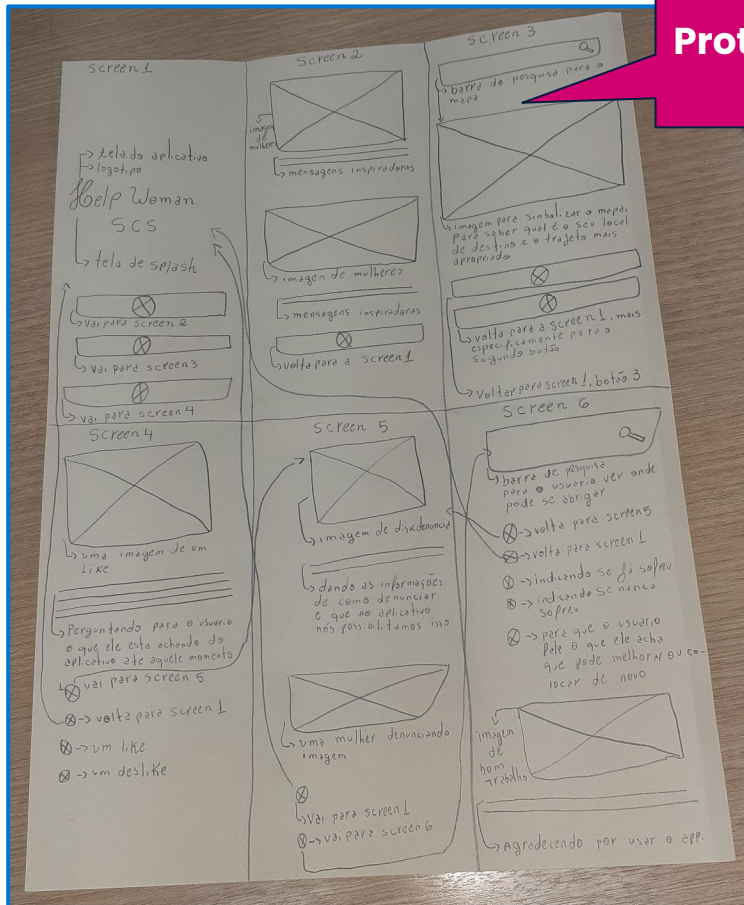 Prot
Screen 1
-> tela do aplicativo
-> logotipo
Help Woman
SCS
-> tela de splash
vai para screen 2
vai para screen 3
vai para screen 4
Screen 2
imagem
de
mulheres
mensagens inspiradoras
imagen de mulheres
mensagens inspiradoras
volta para a screen 1
Screen 3
barra de pesquisa para o
mapa
imagem para simbolizar o mapa,
para saber qual é o seu local
de destino e o trajeto mais
apropriado
volta para a screen 1, mais
especificamente para o
segundo botão
Voltar para screen 1, botão 3
Screen 4
uma imagem de um
Like
Perguntando para o usuario
o que ele esta achando do
aplicativo ate aquele momento
vai para screen 5
-> volta para screen 1
-> um like
-> um deslike
Screen 5
imagem de disk denuncia
dando as informações
de como denunciar
e que no aplicativo
nós possibilitamos isso.
uma mulher denunciando
imagem
Vai para screen 1
-> vai para screen 6
Screen 6
barra de pesquisa
para o usuario ver onde
pode se abrigar
-> volta para screen 5
-> volta para screen 1
-> indicando se já sofreu
-> indicando se nunca
sofreu
-> para que o usuario
fale o que ele acha
que pode melhorar ou co-
locar de novo
imagem
de
bom
trabalho
Agradecendo por usar o app.